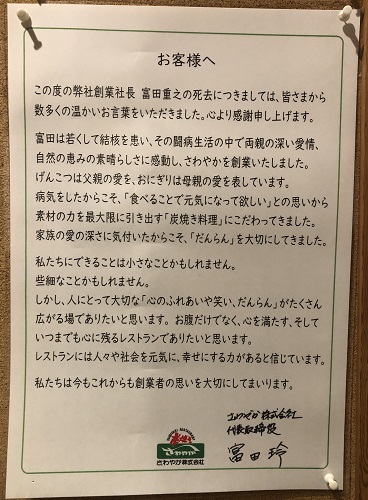 お客様へ
この度の弊社創業社長 富田重之の死去につきましては、皆さまから
数多くの温かいお言葉をいただきました。心より感謝申し上げます。
富田は若くして結核を患い、その闘病生活の中で両親の深い愛情、
自然の恵みの素晴らしさに感動し、さわやかを創業いたしました。
げんこつは父親の愛を、おにぎりは母親の愛を表しています。
病気をしたからこそ、「食べることで元気になって欲しい」との思いから
素材の力を最大限に引き出す「炭焼き料理」にこだわってきました。
家族の愛の深さに気付いたからこそ、「だんらん」を大切にしてきました。
私たちにできることは小さなことかもしれません。
些細なことかもしれません。
しかし、人にとって大切な「心のふれあいや笑い、だんらん」がたくさん
広がる場でありたいと思います。お腹だけでなく、心を満たす、そして
いつまでも心に残るレストランでありたいと思います。
レストランには人々や社会を元気に、幸せにする力があると信じています。
私たちは今もこれからも創業者の思いを大切にしてまいります。
さわやか株式会社
代表取締役
富田 玲
さわやか
さわやか株式会社